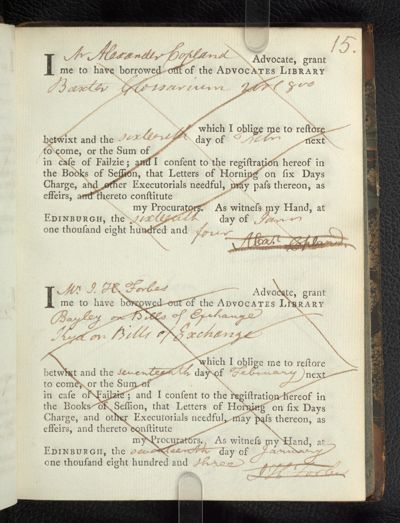 15.
I Mr Alexander Copland Advocate, grant
me to have borrowed out of the ADVOCATES LIBRARY
Baxter Glossarium
which I oblige me to reſtore
betwixt and the sixteenth day of next
to come, or the Sum of
in caſe of Failzie; and I conſent to the regiſtration hereof in
the Books of Seſſion, that Letters of Horning on ſix Days
Charge, and other Executorials needful, may paſs thereon, as
effeirs, and thereto conſtitute
my Procurators. As witneſs my Hand, at
EDINBURGH, the sixteenth day of Janry
one thouſand eight hundred and four
Alexr Copland
I Mr. J. H Forbes Advocate, grant
me to have borrowed out of the ADVOCATES LIBRARY
Bayley on Bills of Exchange
Kyd on Bills of Exchange
which I oblige me to reſtore
betwixt and the seventeenth day of February next
to come, or the Sum of
in caſe of Failzie; and I conſent to the regiſtration hereof in
the Books of Seſſion, that Letters of Horning on ſix Days
Charge, and other Executorials needful, may paſs thereon, as
effeirs, and thereto conſtitute
my Procurators. As witneſs my Hand, at
EDINBURGH, the seventeenth day of January
one thouſand eight hundred and three
J H Forbes